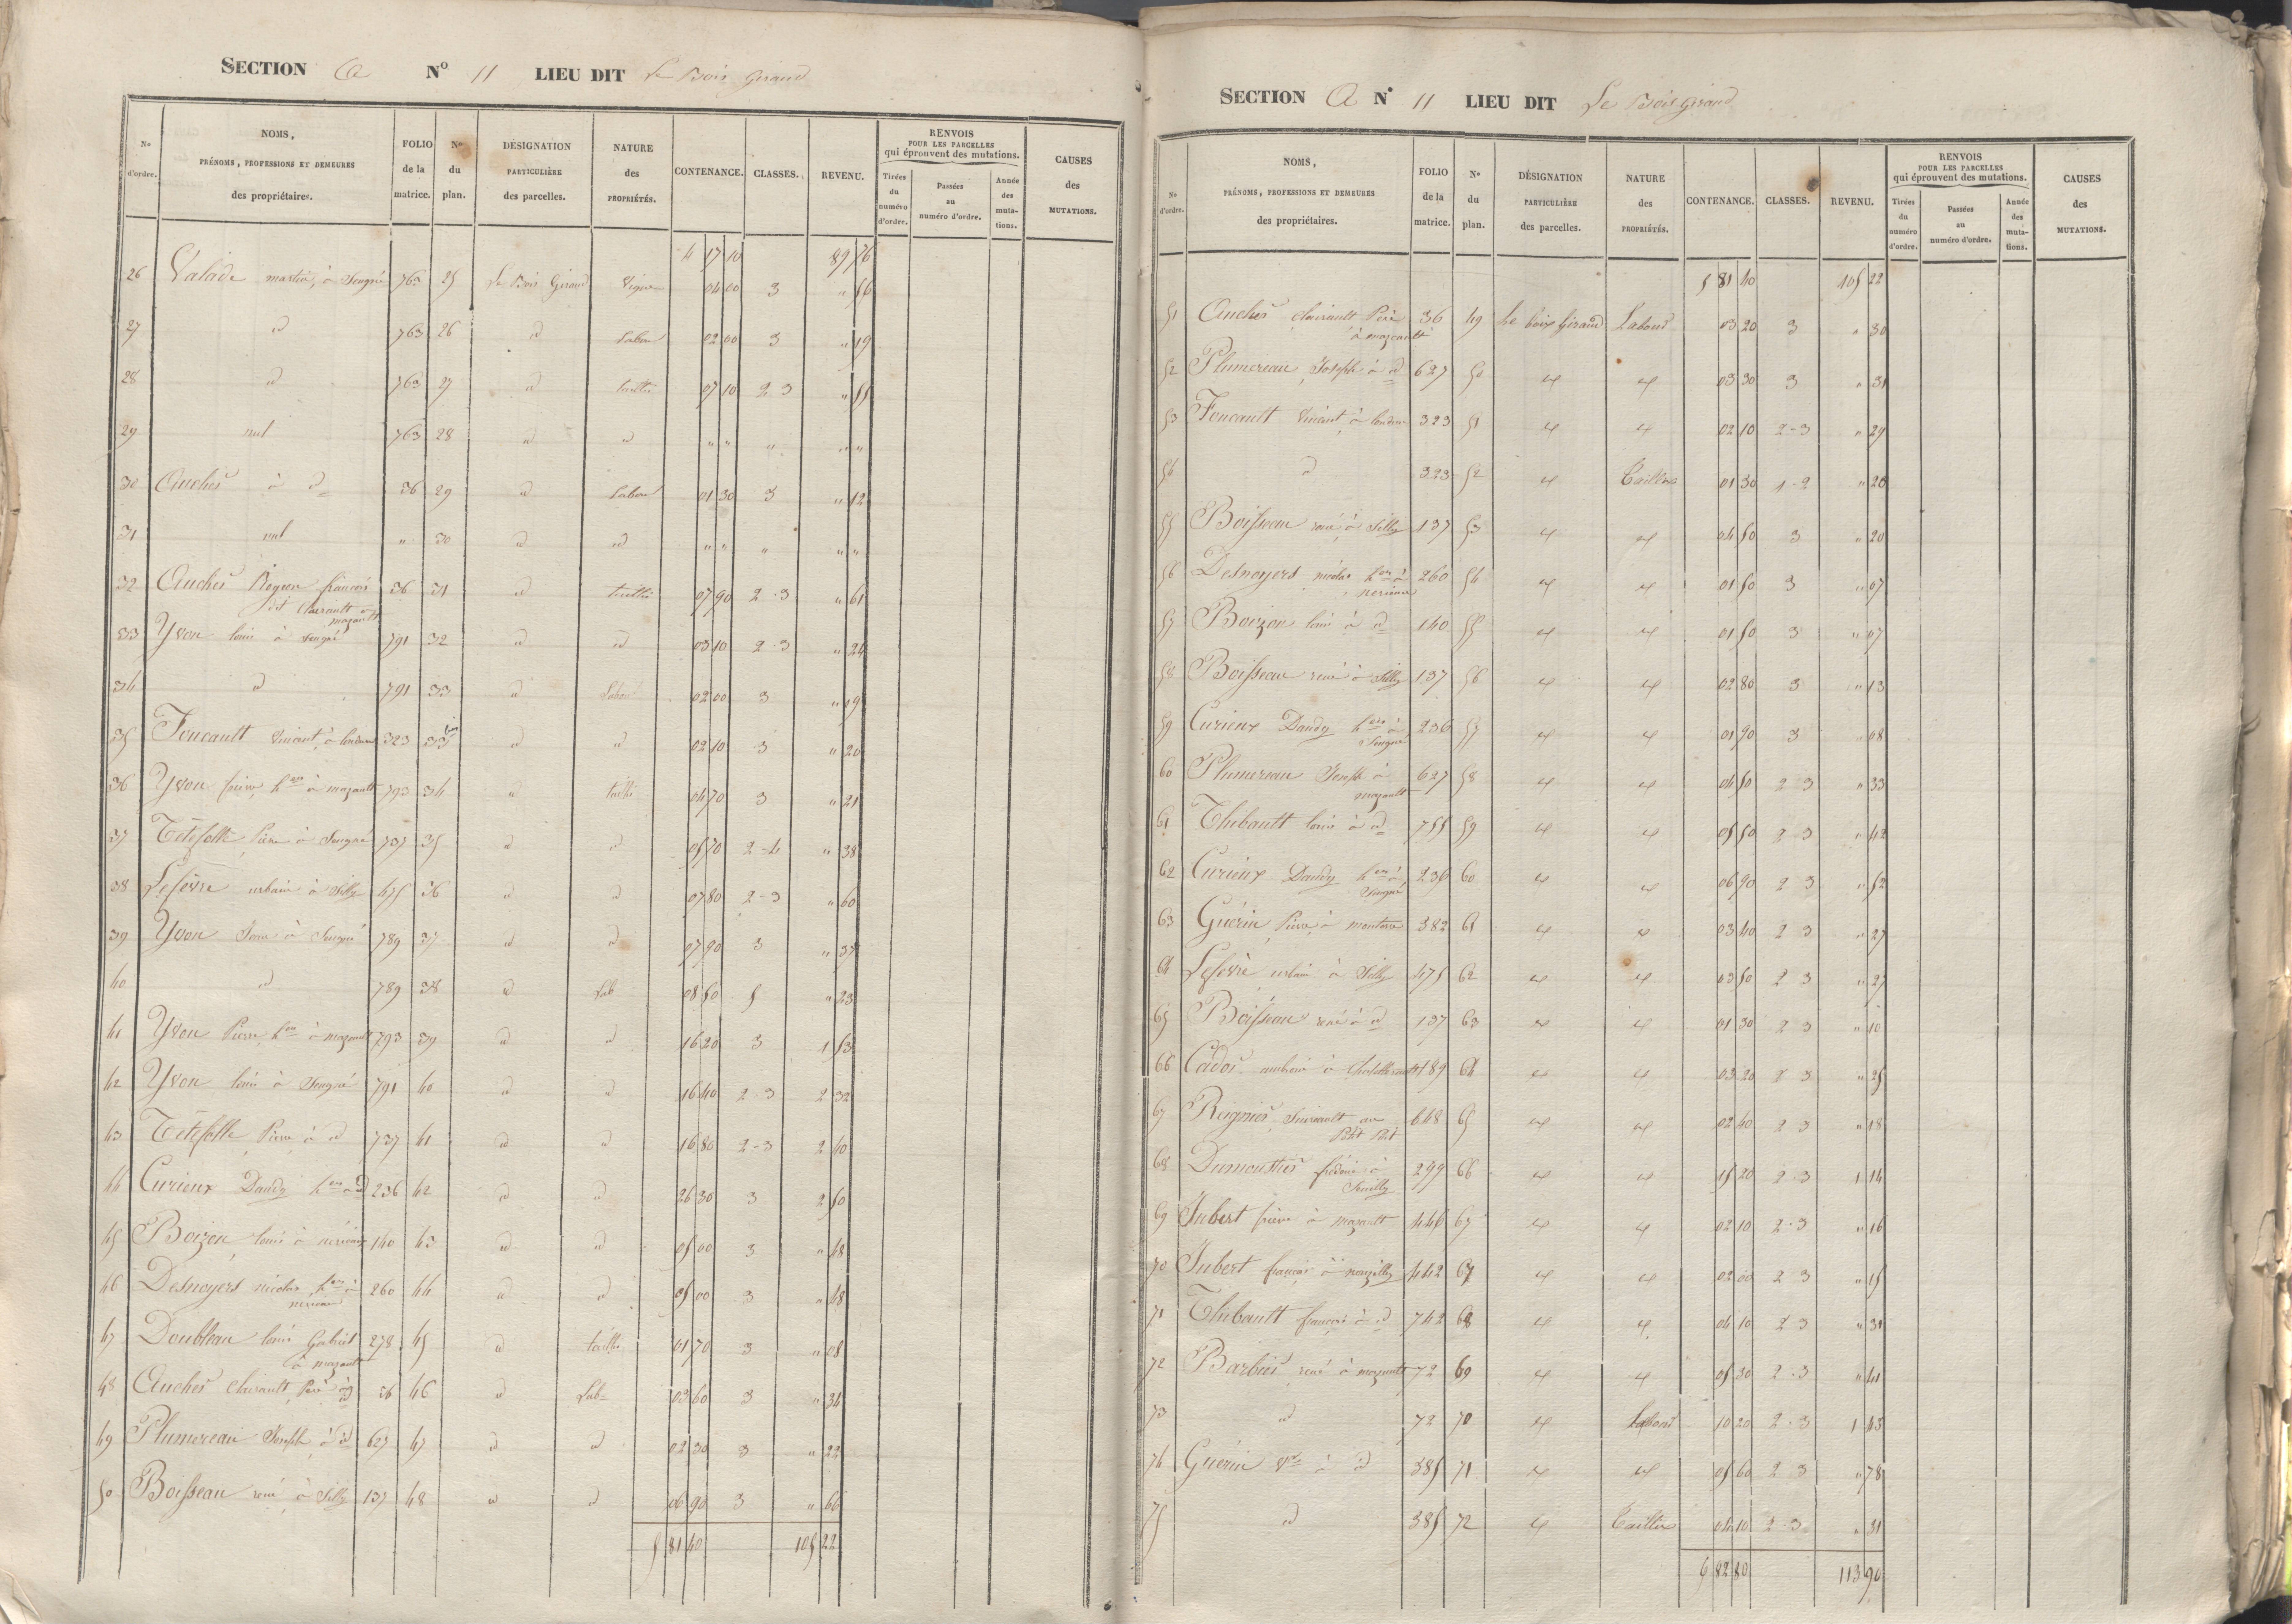 SECTION A N° 11 LIEU DIT Le Bois Giraud
N° d'ordre. NOMS, PRÉNOMS, PROFESSIONS ET DEMEURES des propriétaires. FOLIO de la matrice. N° du plan. DÉSIGNATION PARTICULIÈRE des parcelles. NATURE des PROPRIÉTÉS. CONTENANCE. CLASSES. REVENU. RENVOIS POUR LES PARCELLES qui éprouvent des mutations. Tirées du numéro d'ordre. Passées au numéro d'ordre. Année des mutations. CAUSES des MUTATIONS.
4 17 10 89 76
26 Valade à 763 25 Le Bois Giraud Vigne 04 00 3 " 56
27 id 763 26 id Labour 02 00 3 " 19
28 id 763 27 id taillis 07 10 2 3 " 55
29 nul 763 28 id id " " " " "
30 Auchés à id 36 29 id Labour 01 30 3 " 12
31 nul " 30 id id " " " " "
32 Auchés françois 36 31 id taillis 07 90 2-3 " 61
dit Clairault à mazault
33 Yvon louis à 791 32 id id 03 10 2-3 " 24
34 id 791 33 id Labour 02 00 3 " 19
35 Foucault Vincent à loudun 323 33 bis id id 02 10 3 " 20
36 Yvon pierre hers à mazault 793 34 id taillis 04 70 3 " 21
37 Têtefolle Pierre à 737 35 id id 05 70 2-4 " 38
38 Lefèvre urbain à Silly 475 36 id id 07 80 2-3 " 60
39 Yvon à 789 37 id id 07 90 3 " 37
40 id 789 38 id Lab 08 50 5 " 23
41 Yvon Pierre hers à mazault 793 39 id id 16 20 3 1 53
42 Yvon louis à 791 40 id id 16 40 2-3 2 32
43 Têtefolle Pierre à id 737 41 id id 16 80 2-3 2 40
44 Curieux Dandy hers à id 236 42 id id 26 30 3 2 50
45 Boizon louis à 140 43 id id 05 00 3 " 48
46 Desnoyers nicolas hers à 260 44 id id 05 00 3 " 48
47 Doubleau louis Gabriel 278 45 id taillis 01 70 3 " 08
à mazault
48 Auchés Clairault Père à id 36 46 id Lab 03 60 3 " 34
49 Plumereau Joseph à id 627 47 id id 02 30 3 " 22
50 Boisseau rené à Silly 137 48 id id 06 90 3 " 66
5 81 40 105 22
SECTION A N° 11 LIEU DIT Le Bois Giraud
N° d'ordre. NOMS, PRÉNOMS, PROFESSIONS ET DEMEURES des propriétaires. FOLIO de la matrice. N° du plan. DÉSIGNATION PARTICULIÈRE des parcelles. NATURE des PROPRIÉTÉS. CONTENANCE. CLASSES. REVENU. RENVOIS POUR LES PARCELLES qui éprouvent des mutations. Tirées du numéro d'ordre. Passées au numéro d'ordre. Année des mutations. CAUSES des MUTATIONS.
5 81 40 105 22
51 Auchés Clairault Père 36 49 Le bois Giraud Labour 03 20 3 " 30
à mazault
52 Plumereau Joseph à id 627 50 id id 03 30 3 " 31
53 Foucault Vincent à loudun 323 51 id id 02 10 2-3 " 29
54 id 323 52 id Taillis 01 30 1-2 " 20
55 Boisseau rené à Silly 137 53 id id 04 50 3 " 20
56 Desnoyers nicolas hers à 260 54 id id 01 50 3 " 07
57 Boizon louis à id 140 55 id id 01 50 3 " 07
58 Boisseau rené à Silly 137 56 id id 02 80 3 " 13
59 Curieux Dandy hers à 236 57 id id 01 90 3 " 08
60 Plumereau Joseph à 627 58 id id 04 50 2 3 " 33
mazault
61 Thibault louis à id 755 59 id id 05 50 2 3 " 42
62 Curieux Dandy hers à 236 60 id id 06 90 2 3 " 52
63 Guérin Pierre à 382 61 id id 03 40 2 3 " 27
64 Lefèvre urbain à Silly 475 62 id id 03 50 2 3 " 27
65 Boisseau rené à id 137 63 id id 01 30 2 3 " 10
66 Cador à 189 64 id id 03 20 2 3 " 25
67 au 648 65 id id 02 40 2 3 " 18
68 Dumoustier à 299 66 id id 15 20 2-3 1 14
69 Jubert pierre à mazault 446 67 id id 02 10 2-3 " 16
70 Jubert françois à 442 67 id id 02 00 2 3 " 15
71 Thibault françois à id 742 68 id id 04 10 2 3 " 31
72 Barbier rené à mazault 72 69 id id 05 30 2-3 " 41
73 id 72 70 id Labour 10 20 2-3 1 43
74 Guérin Ve à id 385 71 id id 05 60 2 3 " 78
75 id 385 72 id Taillis 04 10 2-3 " 31
6 82 80 113 90